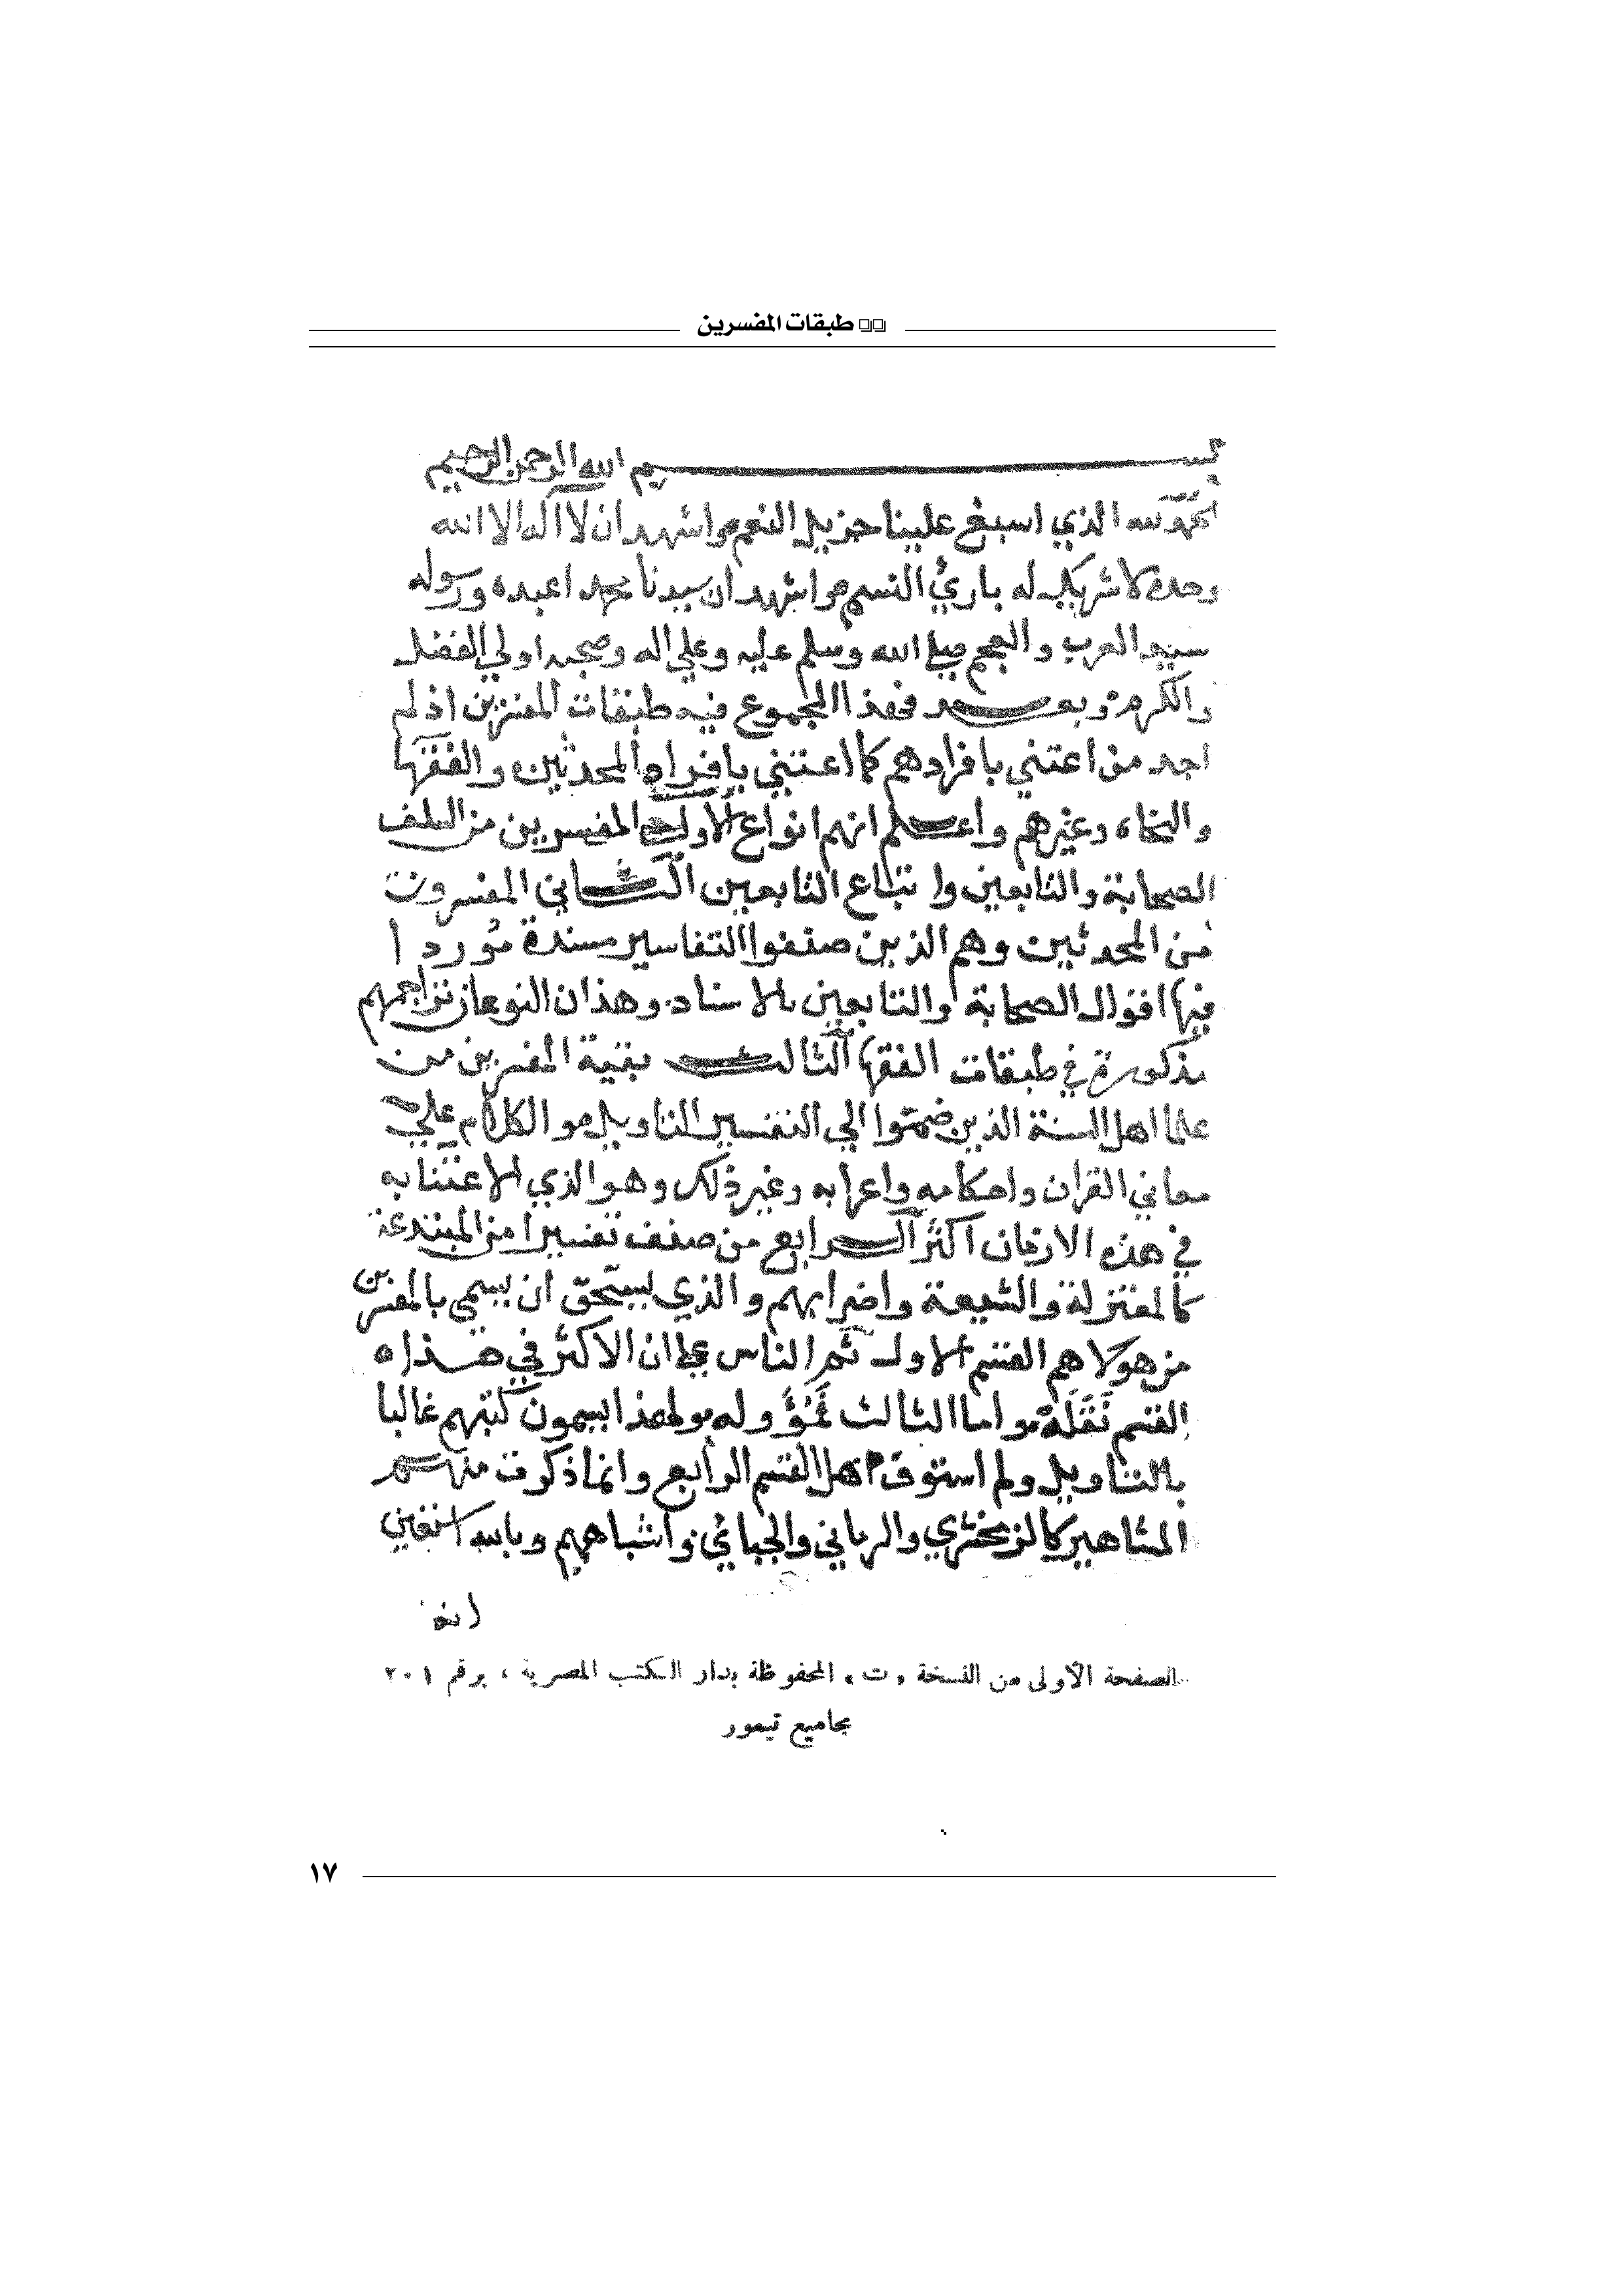 طبقات المفسرين
بسم الله الرحمن الرحيم
الحمد لله الذي اسبغ علينا جزيل النعم واشهد ان لا اله الا الله
وحده لا شريك له بارئ النسم واشهد ان سيدنا محمدا عبده ورسوله
سيد العرب والعجم صلي الله وسلم عليه وعلي اله وصحبه اولي الفضل
والكرم وبعد فهذا المجموع فيه طبقات المفسرين اذ لم
اجد من اعتني بافرادهم كما اعتني بافراد المحدثين والفقها
والنحاه وغيرهم واعلم انهم انواع الاول المفسرين من السلف
الصحابة والتابعين واتباع التابعين الثاني المفسرون
من المحدثين وهم الذين صنفوا التفاسير مسندة مورد ا
فيها اقوال الصحابة والتابعين بالاسناد وهذان النوعان تراجمهم
مذكورة في طبقات الفقها الثالث بقية المفسرين من
علما اهل السنة الذين ضموا الي التفسير التاويل و الكلام علي
معاني القران واحكامه واعرابه وغير ذلك وهو الذي الاعتنا به
في هذه الازمان اكثر الرابع من صنف تفسيرا من المبتدعة
كالمعتزلة والشيعة واضرابهم والذي يستحق ان يسمي بالمفسرين
من هولا هم القسم الاول ثم الناس علي ان الاكثر في هذا
القسم نقلة واما الثالث فمؤوله ولهذا يسمون كتبهم غالبا
بالتاويل ولم استوف اهل القسم الرابع وانما ذكرت منهم
المشاهير كالزمخشري والرماني والجبائي واشباههم وبالله استعين
الصفحة الأولى من النسخة «ت» المحفوظة بدار الكتب المصرية ، برقم ٢٠١
مجاميع تيمور
١٧